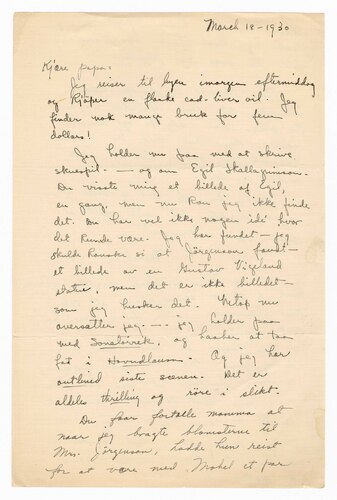 March 18-1930
Kjære papa:
Jeg reiser til byen imorgen eftermiddag
og kjøper en flaske cod-liver oil. Jeg
finder nok mange bruk for fem
dollars!
Jeg holder nu paa med at skrive
skuespil. — og om Egil Skallagrimson.
Du visste mig et billede af Egil,
en gang, men nu kan jeg ikke finde
det. Du har vel ikke nogen idé hvor
det kunde være. Jeg har fundet — jeg
skulde kanske si at Jörgenson fandt —
et billede av en Gustav Vigeland
statue, men det er ikke billedet —
som jeg husker det. Netop nu
oversætter jeg — jeg holder paa
med Sonatorrek, og haaber at taa
fat i Hovudlausn. Og jeg har
outlined siste scenen. Det er
aldeles thrilling og röre i slikt.
Du faar fortælle mamma at
naar jeg bragte blomsterne til
Mrs. Jörgenson, hadde hun reist
for at være med Mabel et par